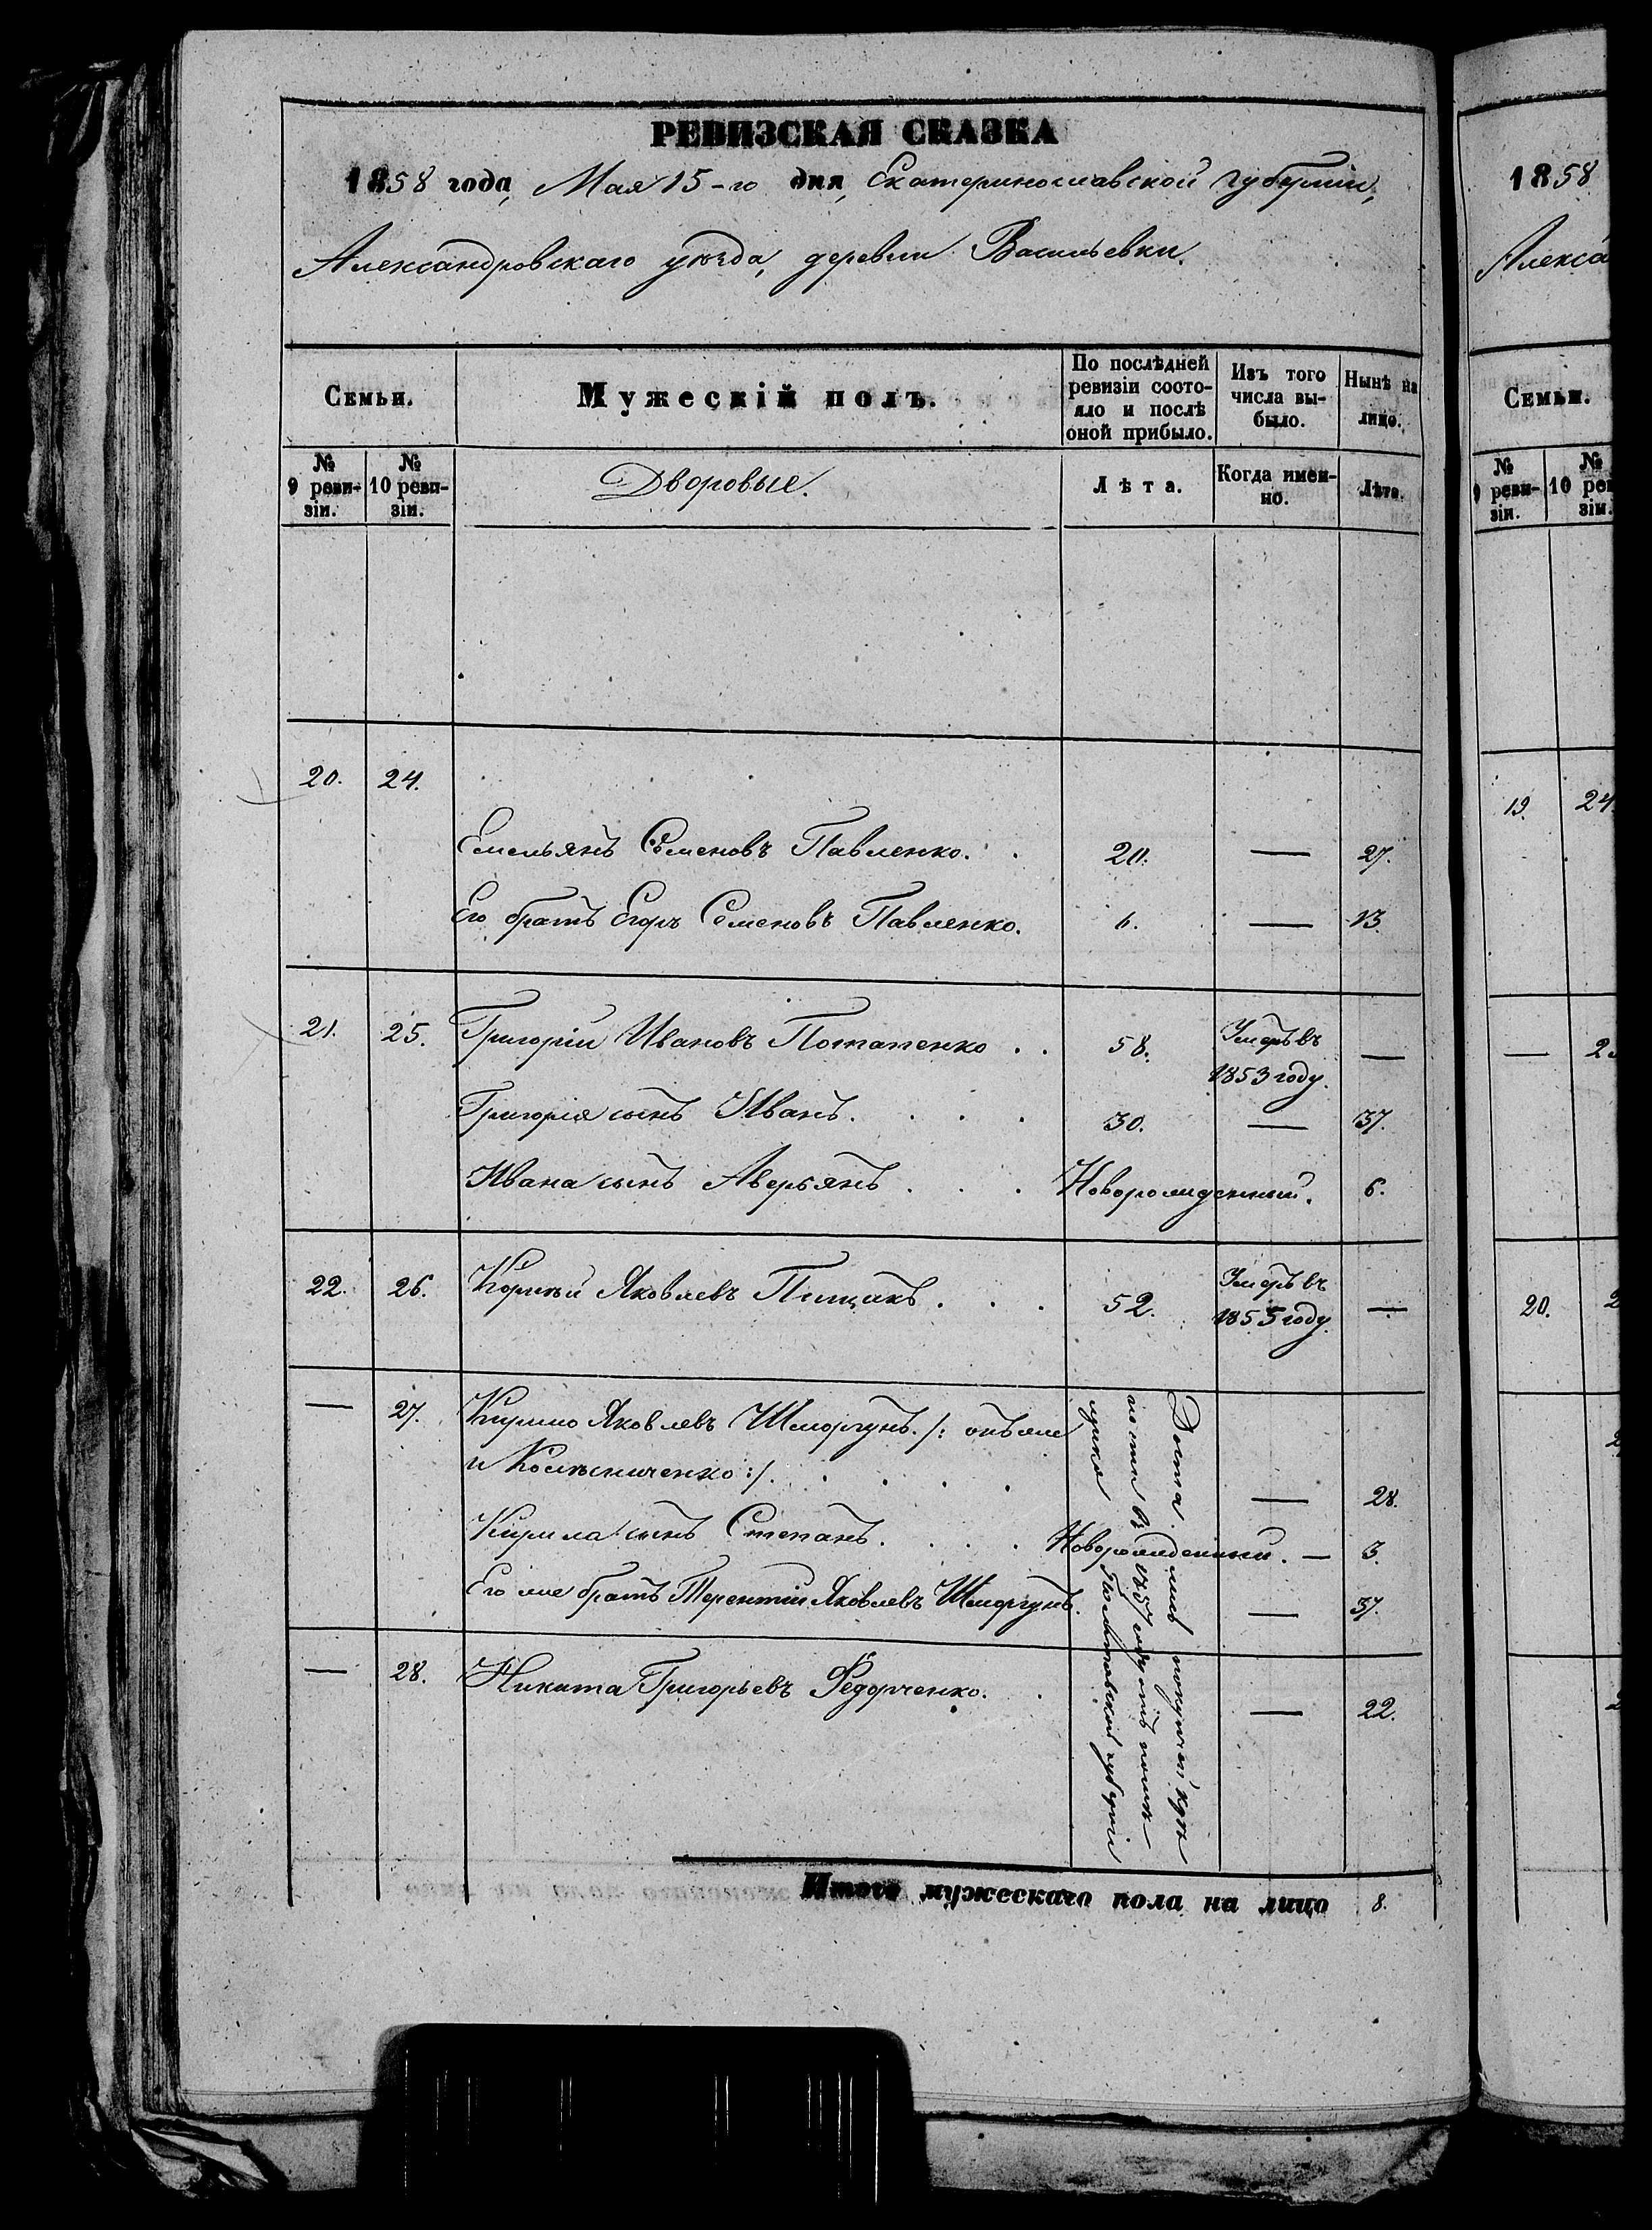 РЕВИЗСКАЯ СКАЗКА
1858 года, Мая 15-го дня, Екатеринославской губернии,
Александровскаго уѣзда, деревни Васильевки.
Семьи.
Мужескій полъ.
По послѣдней ревизіи состояло и послѣ оной прибыло.
Изъ того числа выбыло.
Нынѣ на лицо.
№ 9 ревизіи.
№ 10 ревизіи.
Дворовые.
Лѣта.
Когда именно.
Лѣта.
20. 24.
Емельянъ Семеновъ Павленко. 20. — 27.
Его братъ Егоръ Семеновъ Павленко. 6. — 13.
21. 25. Григорій Ивановъ Потапенко . . 58. Умеръ въ 1853 году. —
Григорія сынъ Иванъ. . . . 30. — 37.
Ивана сынъ Аверьянъ . . . Новорожденный. 6.
22. 26. Корнѣй Яковлевъ Пищикъ . . . 52. Умеръ въ 1855 году. —
— 27. Кирило Яковлевъ Шморгунъ. /: онъ же
и Колѣсниченко :/. . . . . — 28.
Кирила сынъ Степанъ. . . . . Новорожденный. — 3.
Его же братъ Терентій Яковлевъ Шморгунъ. — 37.
— 28. Никита Григорьевъ Федорченко. . — 22.
Доста лись покупкой крѣ
пости въ 1857 году отъ помѣ
щика Полтавской губерніи
Итого мужескаго пола на лицо 8.
1858
Алекса
Семьи.
№ 9 ревизіи.
№ 10 рев зіи.
19. 24
— 2
20. 2
2
2